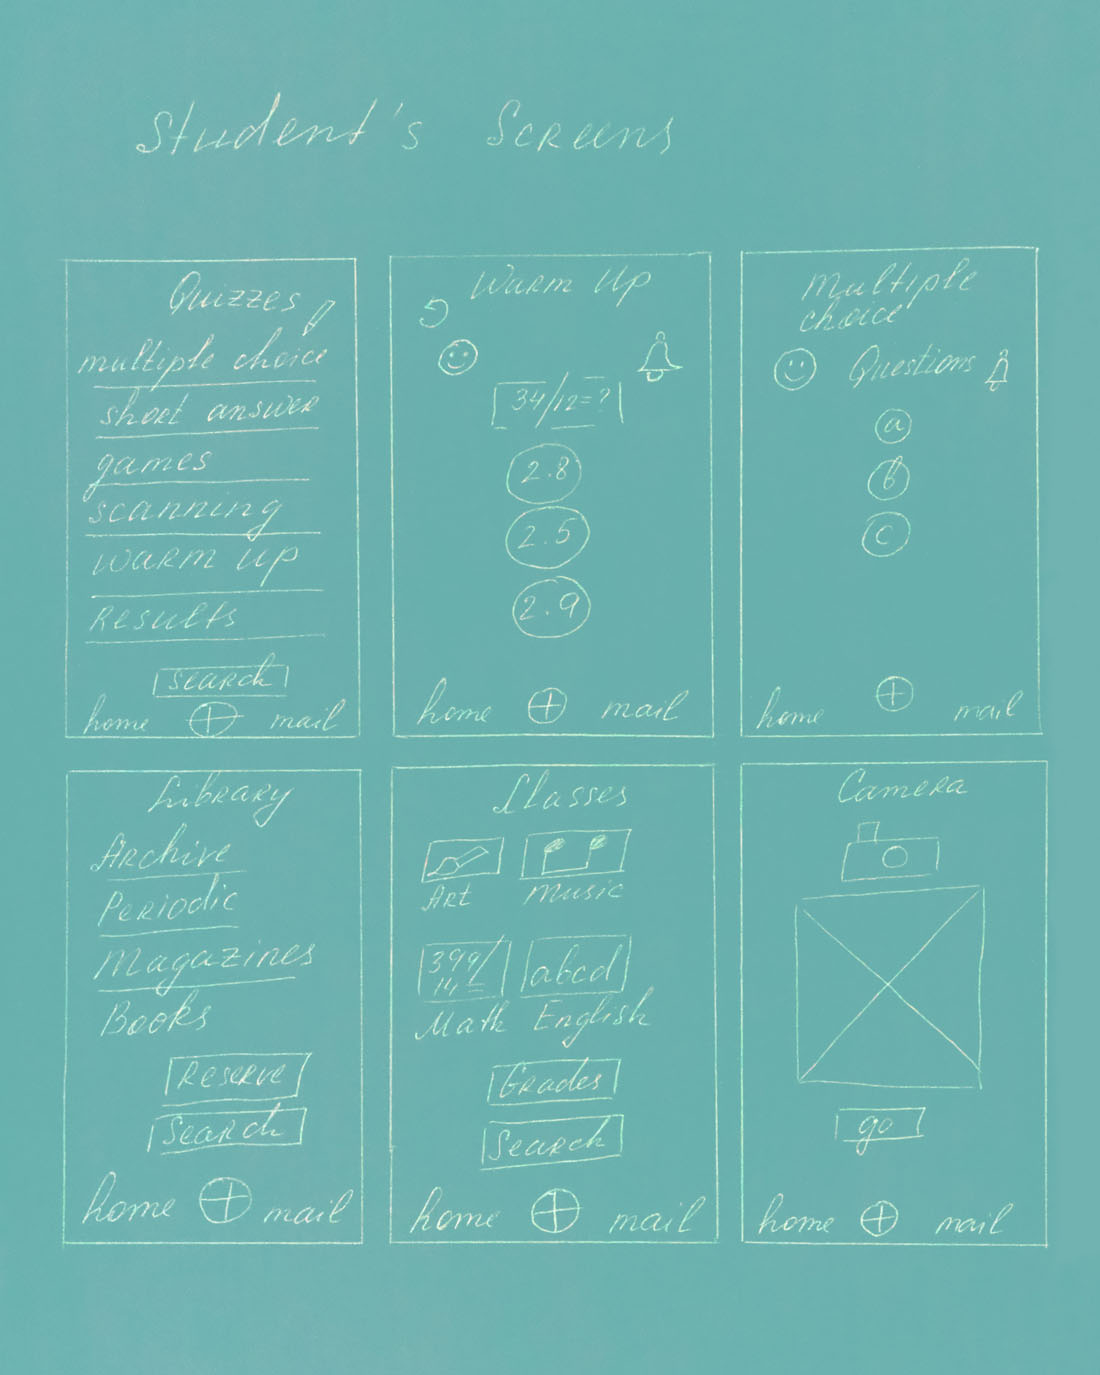 Student's Screens
Quizzes
multiple choice
short answer
games
scanning
warm up
Results
search
home mail
Warm Up
34/12=?
2.8
2.5
2.9
home mail
Multiple
choice
Questions
a
b
c
home mail
Library
Archive
Periodic
Magazines
Books
Reserve
Search
home mail
Classes
Art Music
399/
14= abcd
Math English
Grades
Search
home mail
Camera
go
home mail